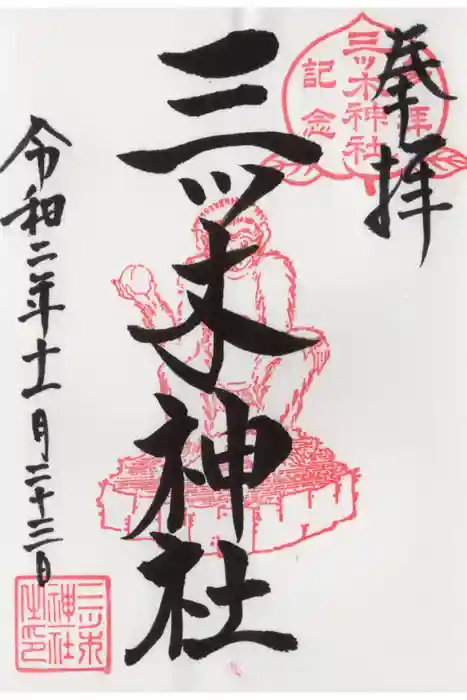 奉拝
三ツ木神社
参拝
三ツ木神社
記念
令和二年十一月二十三日
三ツ木
神社
之印